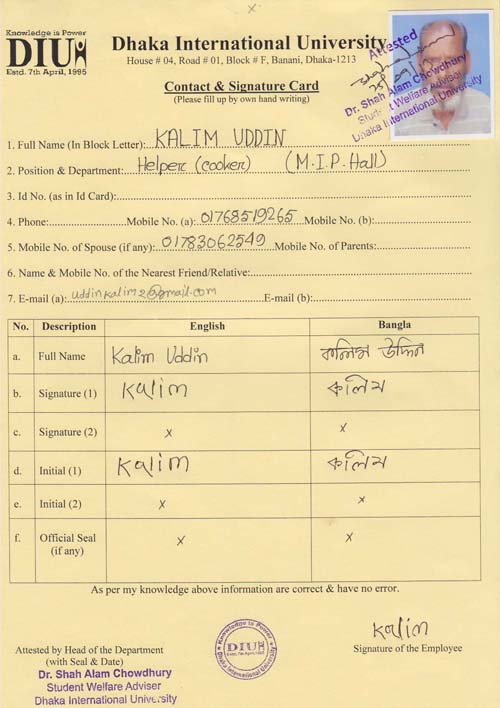 Knowledge is Power
DIU
Estd. 7th April, 1995
Dhaka International University
House # 04, Road # 01, Block # F, Banani, Dhaka-1213
Contact & Signature Card
(Please fill up by own hand writing)
Attested
Dr. Shah Alam Chowdhury
Student Welfare Adviser
Dhaka International University
1. Full Name (In Block Letter): KALIM UDDIN
2. Position & Department: Helper (cooker) (M.I.P. Hall)
3. Id No. (as in Id Card):
4. Phone: Mobile No. (a): 01768519265 Mobile No. (b):
5. Mobile No. of Spouse (if any): 01783062549 Mobile No. of Parents:
6. Name & Mobile No. of the Nearest Friend/Relative:
7. E-mail (a): uddinkalim2@gmail.com E-mail (b):
No. Description English Bangla
a. Full Name Kalim Uddin কলিম উদ্দিন
b. Signature (1) Kalim কলিম
c. Signature (2) x x
d. Initial (1) Kalim কলিম
e. Initial (2) x x
f. Official Seal x x
(if any)
As per my knowledge above information are correct & have no error.
Kalim
Signature of the Employee
Attested by Head of the Department
(with Seal & Date)
Dr. Shah Alam Chowdhury
Student Welfare Adviser
Dhaka International University
Knowledge is Power
DIU
Dhaka International University